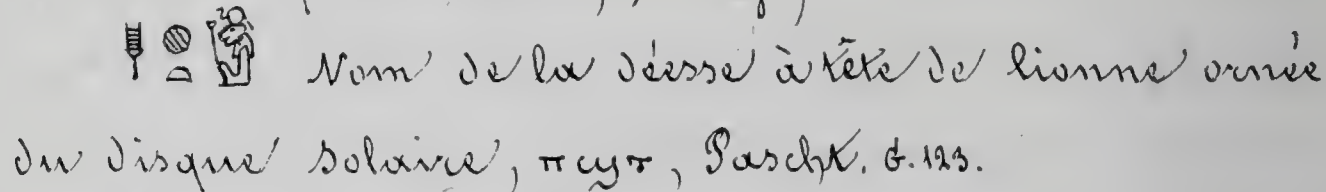 Nom de la déesse à tête de lionne ornée
du disque solaire, ⲡϣⲧ, Pascht. G. 123.